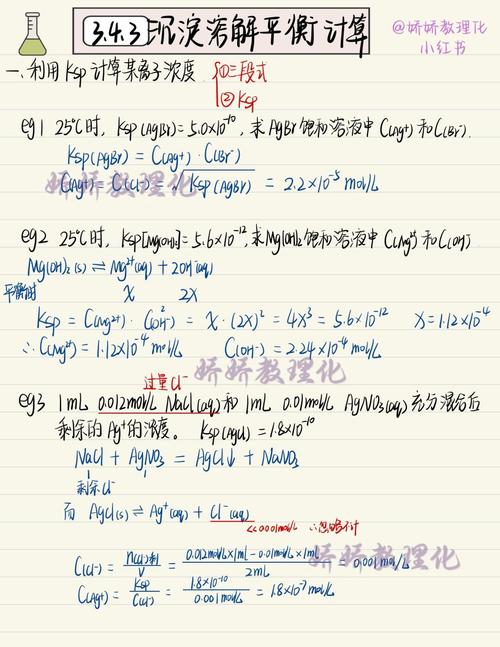 3.4.3 沉淀溶解平衡计算
@娇娇教理化
小红书
一、利用Ksp计算某离子浓度 ①三段式
②Ksp
eg1 25℃时, Ksp(AgBr)=5.0×10⁻¹⁰, 求AgBr饱和溶液中C(Ag⁺)和C(Br⁻).
Ksp(AgBr) = C(Ag⁺)·C(Br⁻)
C(Ag⁺) = C(Cl⁻) = √Ksp(AgBr) = 2.2×10⁻⁵ mol/L
娇娇教理化
eg2 25℃时, Ksp[Mg(OH)₂]=5.6×10⁻¹², 求Mg(OH)₂饱和溶液中C(Mg²⁺)和C(OH⁻)
Mg(OH)₂(s) ⇌ Mg²⁺(aq) + 2OH⁻(aq)
平衡时 x 2x
Ksp = C(Mg²⁺)·C²(OH⁻) = x·(2x)² = 4x³ = 5.6×10⁻¹² x=1.12×10⁻⁴
∴C(Mg²⁺)=1.12×10⁻⁴ mol/L C(OH⁻)=2.24×10⁻⁴ mol/L
过量Cl⁻ 娇娇教理化
eg3 1mL 0.012mol/L NaCl(aq)和1mL 0.01mol/L AgNO₃(aq)充分混合后
剩余的Ag⁺的浓度。 Ksp(AgCl)=1.8×10⁻¹⁰
NaCl + AgNO₃ = AgCl↓ + NaNO₃
剩余Cl⁻
而 AgCl(s) ⇌ Ag⁺(aq) + Cl⁻(aq)
<<0.001mol/L ∴忽略不计
娇娇教理化
C(Cl⁻) = n(Cl⁻)剩/V = 0.012mol/L×1mL-0.01mol/L×1mL/2mL = 0.001mol/L
C(Ag⁺) = Ksp/C(Cl⁻) = 1.8×10⁻¹⁰/0.001mol/L = 1.8×10⁻⁷ mol/L